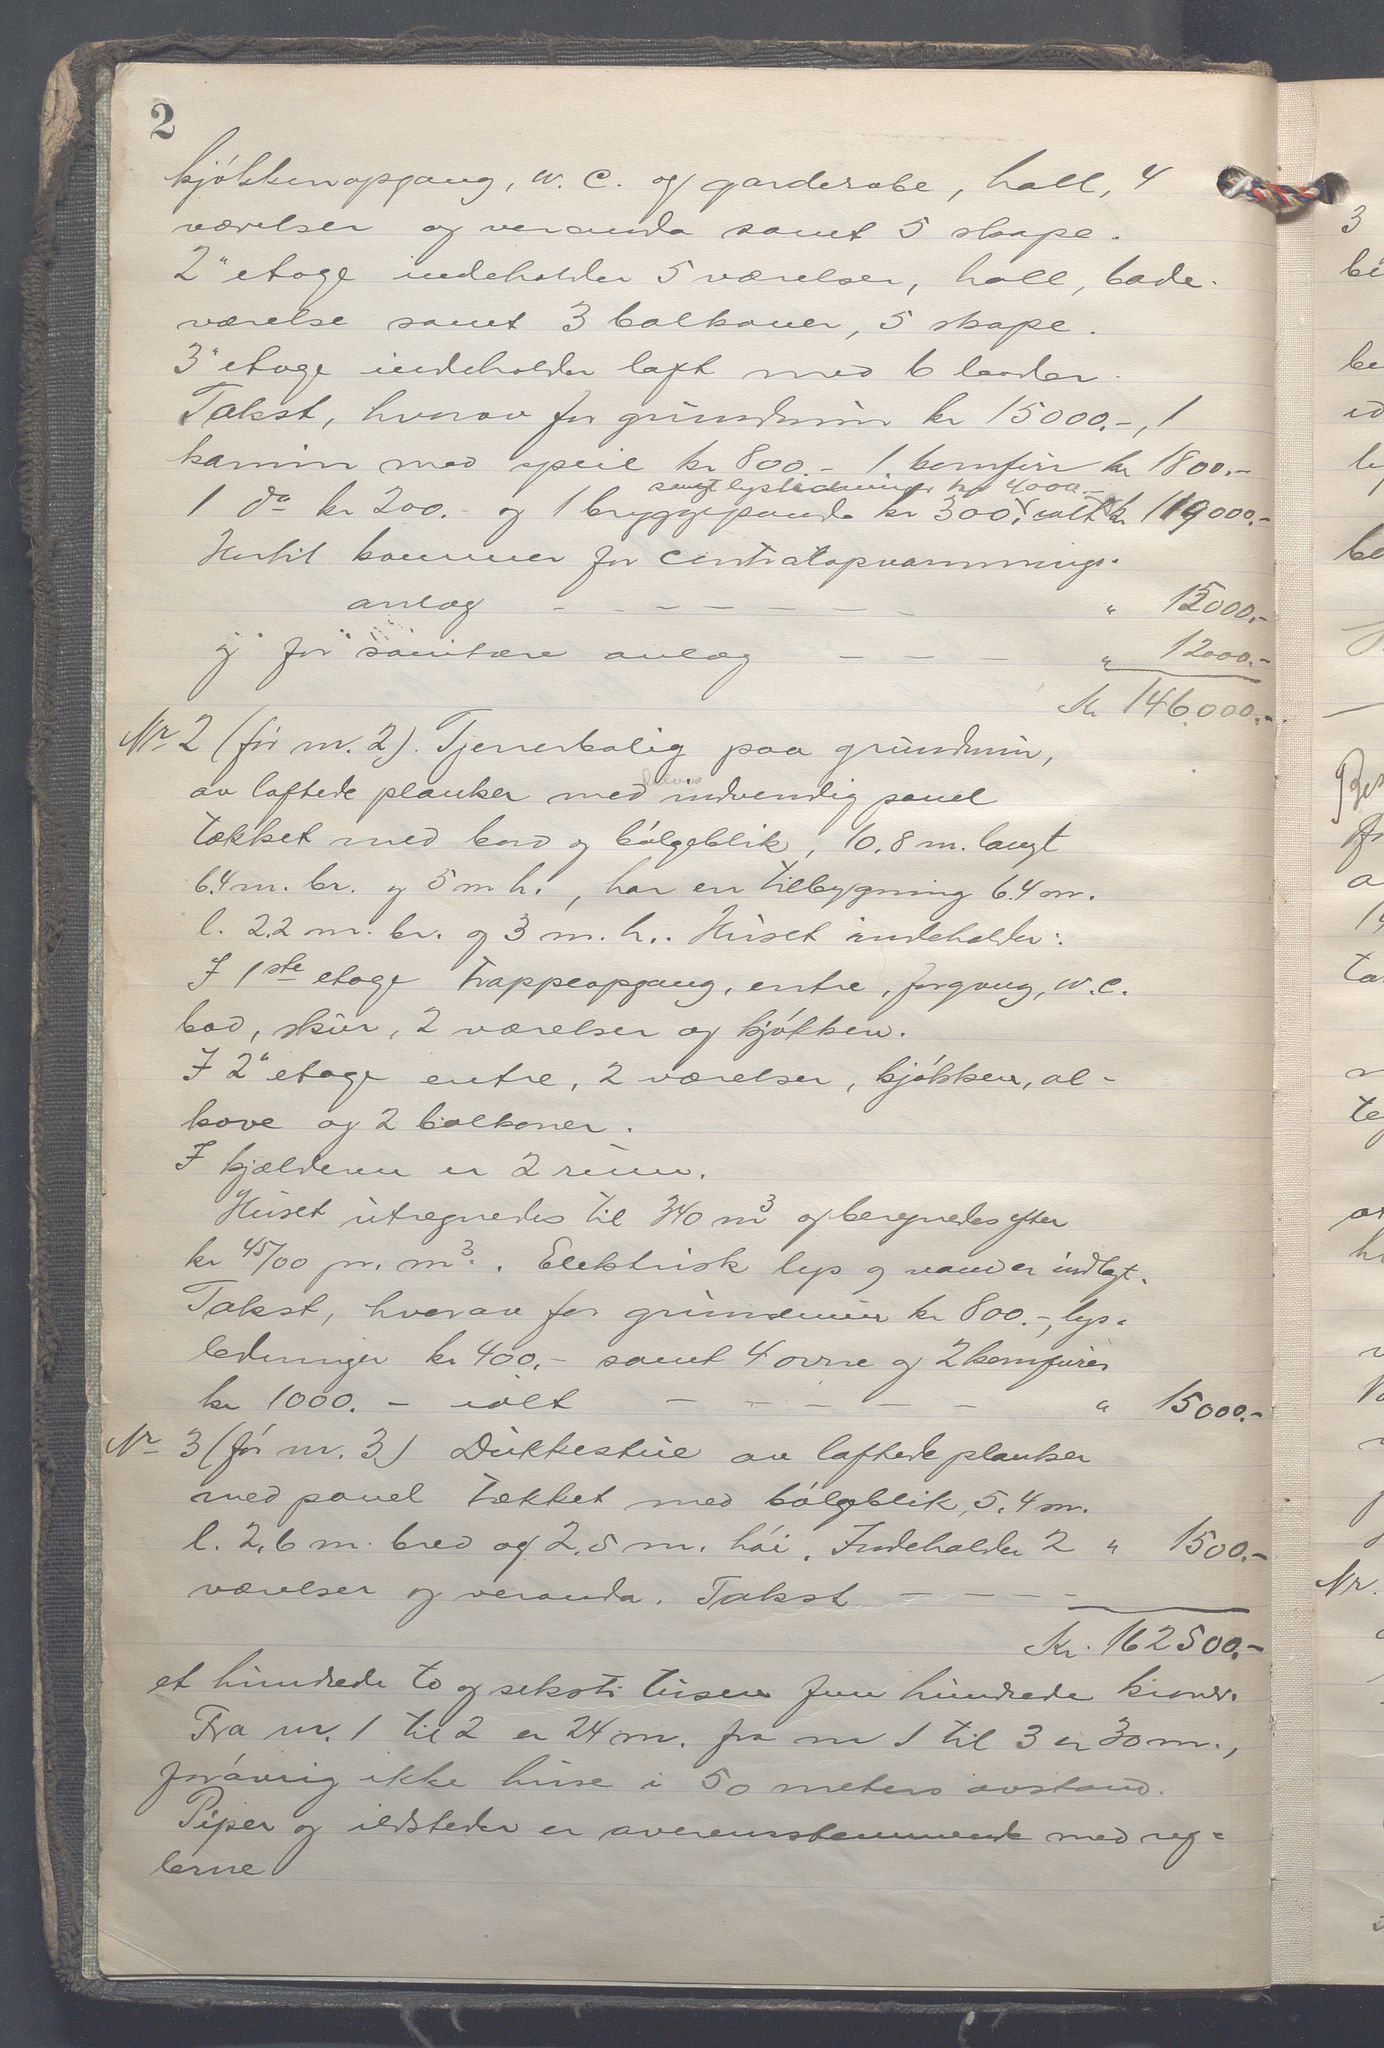 2
kjökkenopgang, w.c. og garderobe, hall, 4
værelser og veranda samt 5 skape.
2" etage indeholder 5 værelser, hall, bade-
værelse samt 3 balkoner, 5 skape.
3" etage indeholder loft med 6 boder.
Takst, hvorav for grundmur kr 15000.-, 1
kamin med speil kr 800.- 1 komfür kr 1800.-
samt lysledninger kr 4000.-
1 do kr 200.- og 1 bryggepande kr 300.- ialt kr 119000.-
Hertil kommer for centralopvarmnings-
anlæg - - - - - - - " 15000.-
og for sanitære anlæg - - - " 12000.-
Kr 146.000.-
Nr 2 (för nr. 2). Tjenerbolig paa grundmur,
delvis
av laftede planker med indvendig panel
tækket med bord og bölgeblik, 10.8 m. langt
6.4 m. br. og 5 m h., har en tilbygning 6.4 m.
l. 2.2 m. br. og 3 m. h.. Huset indeholder:
I 1ste etage trappeopgang, entre, forgang, w.c.
bod, skur, 2 værelser og kjökken.
I 2" etage entre, 2 værelser, kjökken, al-
kove og 2 balkoner.
I kjælderen er 2 rum.
Huset utregnedes til 340 m3 og beregnedes efter
kr 45/00 pr. m3. Elektrisk lys og vand er indlagt.
Takst, hvorav for grundmur kr 800.-, lys-
ledninger kr 400.- samt 4 ovne og 2 komfurer
kr 1000.- ialt - - - - - " 15000.-
Nr 3 (för nr. 3) Dukkestue av laftede planker
med panel tækket med bölgeblik, 5.4 m.
l. 2.6 m. bred og 2.5 m. höi. Indeholder 2 " 1500.-
værelser og veranda. Takst - - - -
Kr. 162500.-
et hundrede to og seksti tusen fem hundrede kroner.
Fra nr. 1 til 2 er 24 m. fra nr 1 til 3 er 30 m.,
forövrig ikke huse i 50 meters avstand.
Piper og ildsteder er overensstemmende med reg-
lerne